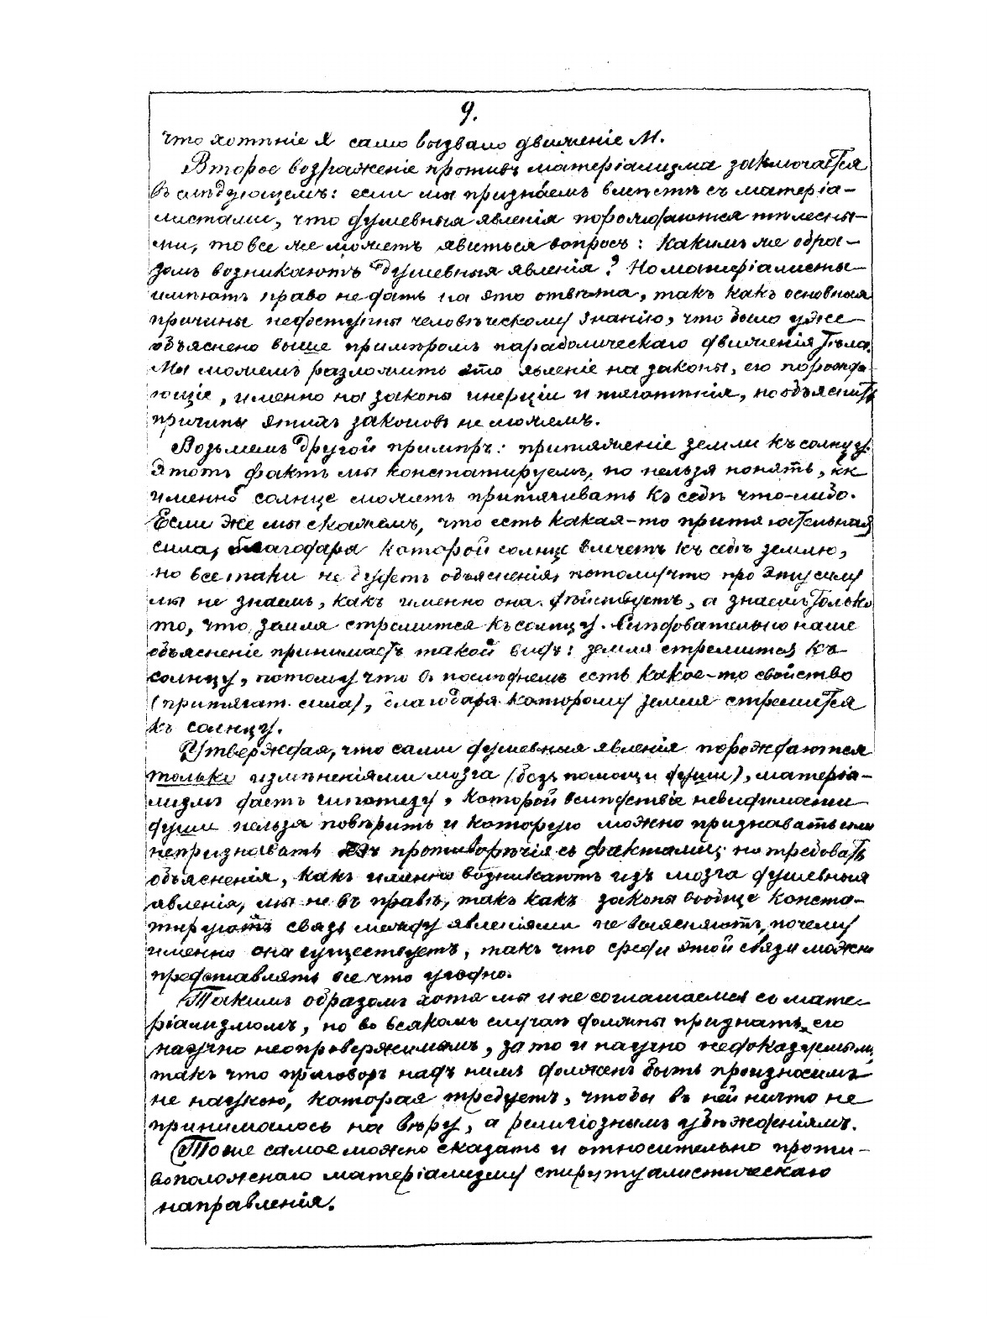 9.
что хотѣніе Я само вызвало движеніе М.
Второе возраженіе противъ матеріализма заключается
въ слѣдующемъ: если мы признаемъ вмѣстѣ съ матеріа-
листами, что душевныя явленія порождаются тѣлесны-
ми, то все же можетъ явиться вопросъ: какимъ же обра-
зомъ возникаютъ душевныя явленія? Но матеріалисты
имѣютъ право не дать на это отвѣта, такъ какъ основныя
причины недоступны человѣческому знанію, что было уже
объяснено выше примѣромъ параболическаго движенія тѣла.
Мы можемъ разложить это явленіе на законы, его порожда-
ющіе, именно на законы инерціи и тяготѣнія, но объяснить
причины этихъ законовъ не можемъ.
Возьмемъ другой примѣръ: притяженіе земли къ солнцу.
Этотъ фактъ мы констатируемъ, но нельзя понять, какъ
именно солнце можетъ притягивать къ себѣ что-либо.
Если же мы скажемъ, что есть какая-то притягательная
сила, благодаря которой солнце влечетъ къ себѣ землю,
но все таки не будетъ объясненія, потому что про эту силу
мы не знаемъ, какъ именно она дѣйствуетъ, а знаемъ только
то, что земля стремится къ солнцу. Слѣдовательно наше
объясненіе принимаетъ такой видъ: земля стремится къ
солнцу, потому что въ послѣднемъ есть какое-то свойство
(притягат. сила), благодаря которому земля стремится
къ солнцу.
Утверждая, что сами душевныя явленія порождаются
только измѣненіями мозга (безъ помощи души), матеріа-
лизмъ даетъ гипотезу, которой вслѣдствіе невидимости
души нельзя повѣрить и которую можно признавать или
непризнавать безъ противорѣчія съ фактами; но требовать
объясненія, какъ именно возникаютъ изъ мозга душевныя
явленія, мы не въ правѣ, такъ какъ законы вообще конста-
тируютъ связь между явленіями не выясняютъ, почему
именно она существуетъ, такъ что среди этой связи можно
представлять все что угодно.
Такимъ образомъ хотя мы и не соглашаемся съ мате-
ріализмомъ, но во всякомъ случаѣ должны признать его
научно неопровержимымъ, за то и научно недоказуемымъ,
такъ что приговоръ надъ нимъ долженъ быть произносимъ
не наукою, которая требуетъ, чтобы въ ней ничто не
принималось на вѣру, а религіознымъ убѣжденіямъ.
Тоже самое можно сказать и относительно проти-
воположнаго матеріализму спиритуалистическаго
направленія.